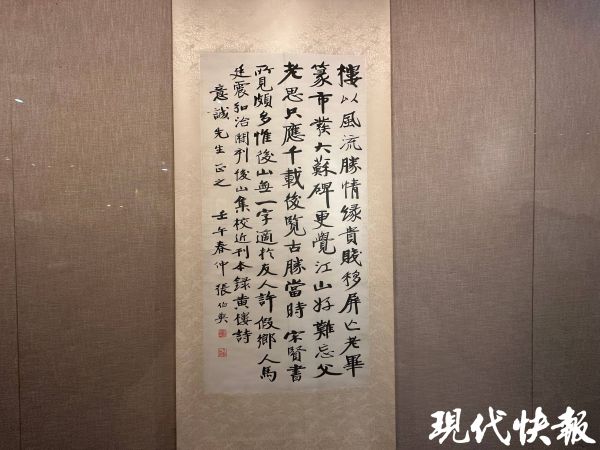 樓以風流勝情緣貴賤移屏亡老畢
篆市發大蘇碑更覺江山好難忘父
老思只應千載後覽古勝當時 宋賢書
所見頗多惟後山無一字適於友人許假鄉人馬
廷震和治間刊後山集校近刊本錄黃樓詩
意誠先生正之 壬午春仲 張伯英
現代快報